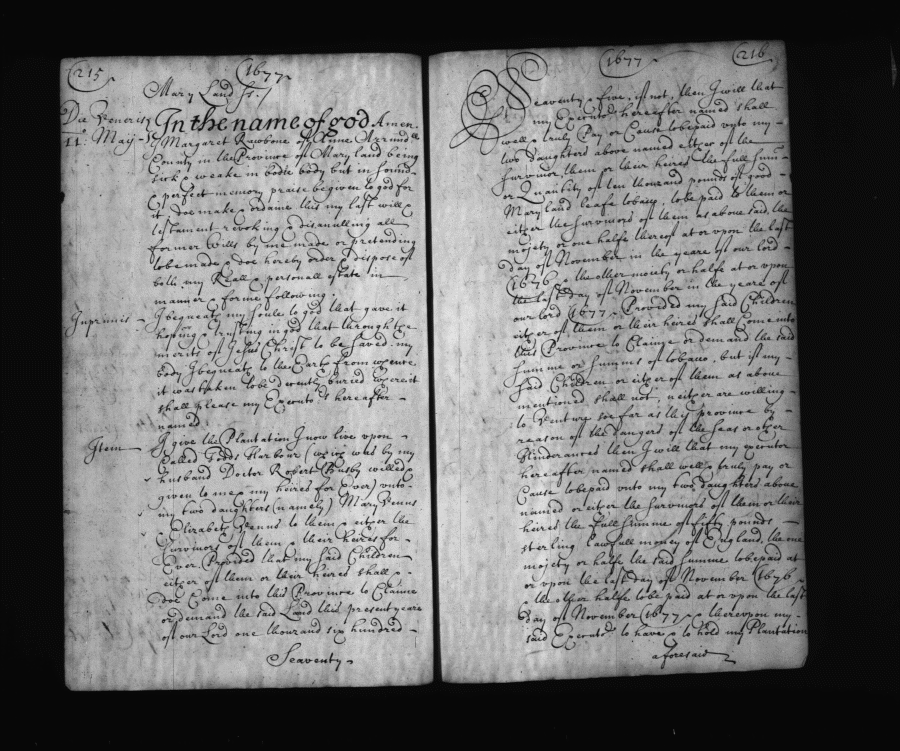 215
1677
Mary Land ss.
Die Veneris
11º Maij
In the name of god Amen.
I Margaret Rawbone of Anne Arrundll
County in the Province of Mary land being
sick & weake in bodie body but in sound
& perfect memory praise be given to god for
it, doe make & ordaine this my last will &
testament revoking & disanulling all
former Wills by me made or pretending
to be made & doe hereby order & dispose of
both my Reall & personall estate in
manner & forme following.
Inprimis
I bequeath my Soule to god that gave it
hoping & trusting in god that through the
merits of Jesus Christ to be saved. my
body I bequeath to the Earth from whence
it was taken to be decently buried where it
shall please my Executors hereafter
named
Item
I give the Plantation I now live upon
Called Godds Harbour (which was by my
husband Doctor Robert Busby willed &
given to me & my heires for Ever) unto
my two daughters (namely) Mary Venus
& Elizabeth Venus to them & either the
Survivors of them & their heires for
Ever, Provided that my said Children
either of them or their heires shall &
doe Come into this Province to Claime
or demand the said Land this present yeare
of our Lord one thouzand six hundred
Seaventy
1677
216
Seaventy & five, if not, then I will that
my Executors hereafter named shall
well & truly Pay or Cause to be paid unto my
two daughters above named either of the
Survivors them or their heires the full Summ
or Quantity of ten thousand pounds of good
Mary land leafe tobaco, to be paid to them or
either the Survivors of them as abovesaid, the
moyety or one halfe thereof at or upon the last
day of November in the yeare of our lord
1676 & the other moiety or halfe at or upon
the last day of November in the yeare of
our lord 1677. Provided my said Children
either of them or their heires shall Come into
this Province to Claime or demand the said
Summe or Summs of tobacco, but if my
said Children or either of them as above
mentioned shall not, neither are willing
to Venture soe far as this province by
reason of the dangers of the Seas or other
Hinderances then I will that my executor
hereafter named shall well & truly pay or
Cause to be paid unto my two daughters above
named or either the Survivors of them or their
heires the full summe of fifty pounds
sterling lawfull money of England, the one
moyety or halfe the said Summe to be paid at
or upon the last day of November 1676
& the other halfe to be paid at or upon the last
day of November 1677 & thereupon my
said Executors to have & to hold my Plantation
aforesaid